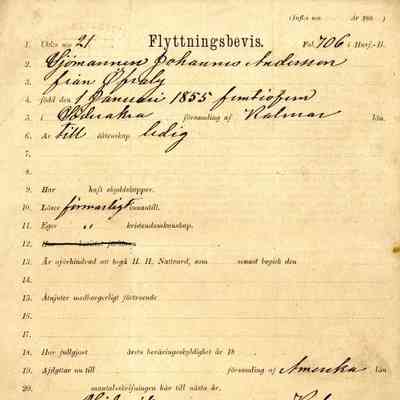 (Infln n:o År 188 )
1. Utfln n:o 21 Flyttningsbevis. Fol. 706 i Husf.-B.
2. Sjömannen Johannes Andersson
3. från
4. född den 1 Januari 1855 femtiofem
5. i församling af Kalmar län.
6. Är till äktenskap ledig
7.
8.
9. Har haft skyddskoppor.
10. Läser försvarligt innantill.
11. Eger " kristendomskunskap.
12. Har
13. Är oförhindrad att begå H. H. Nattvard, som senast begick den
14.
15. Åtnjuter medborgerligt förtroende
16.
17.
18. Har fullgjort årets beväringsskyldighet år 18
19. Afflyttar nu till församling af Amerika län.
20. mantalsskrifningen här till nästa år.